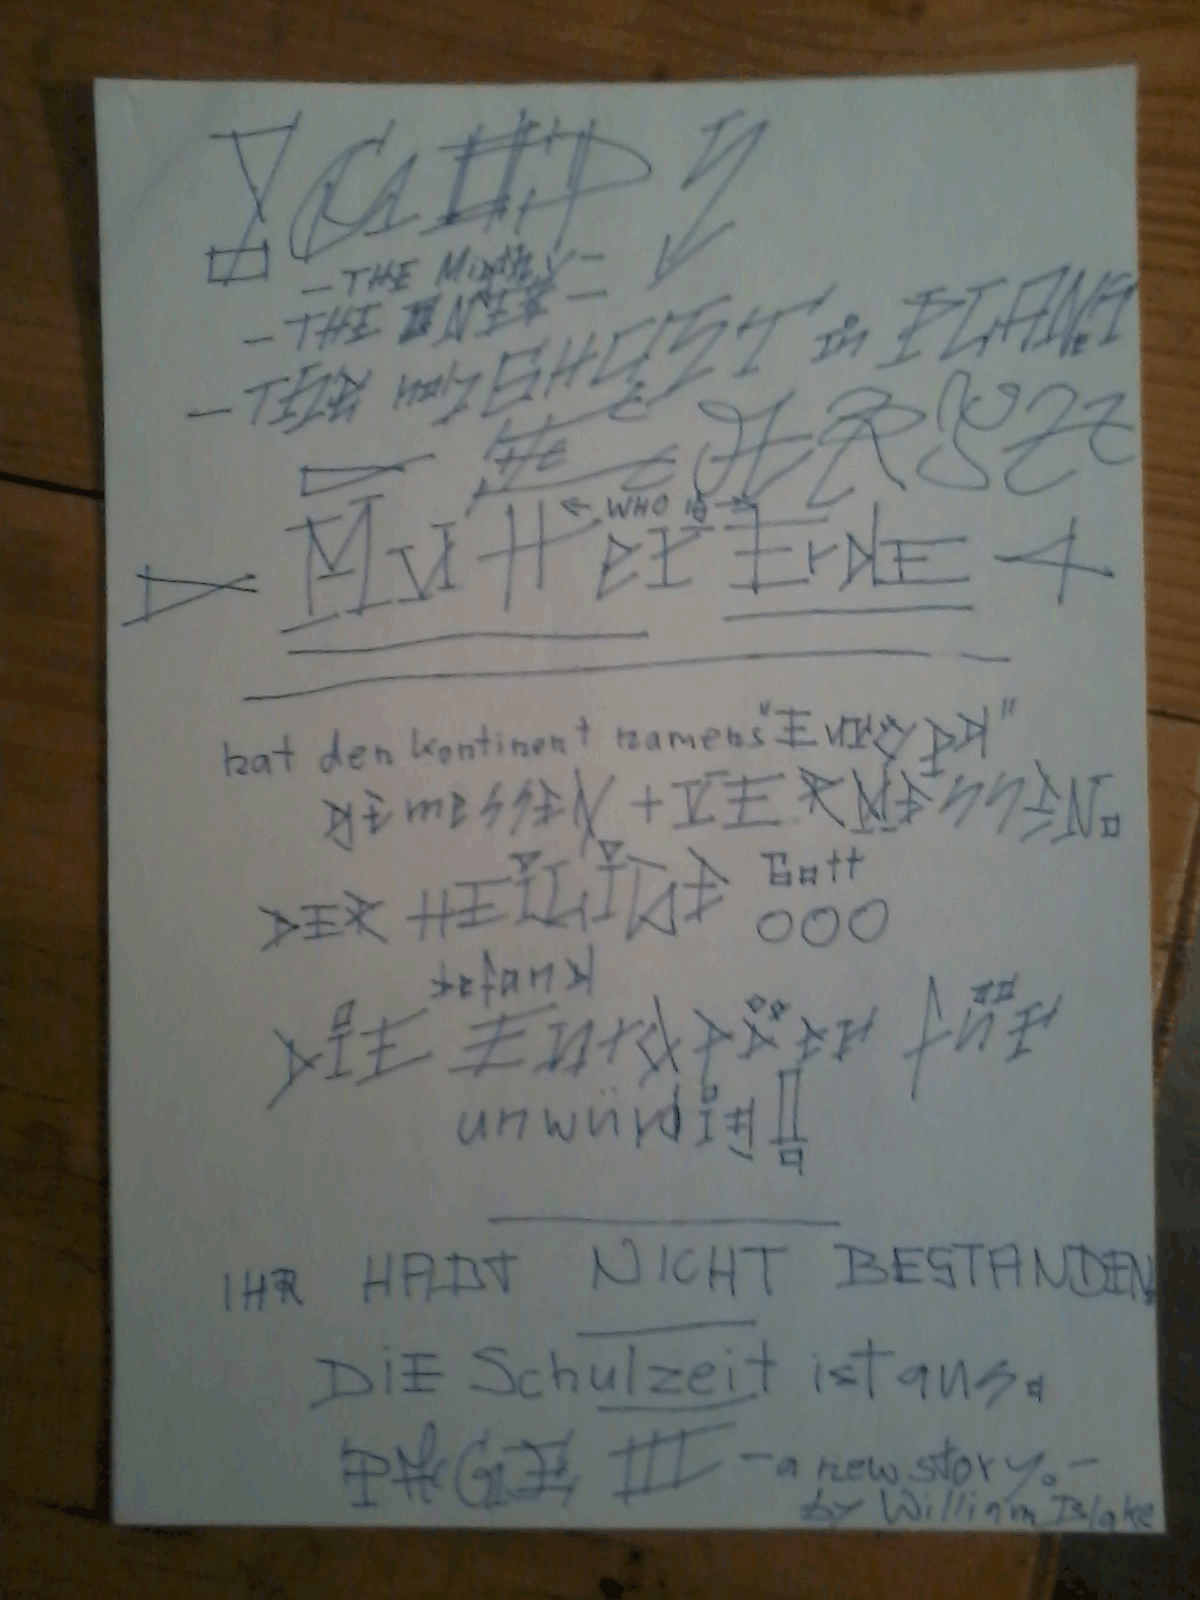 ! GOD
- THE Mighty -
- THE ONE -
- THE holy GHOST in PLANeT
the
← WHO is →
MUH der Erde
hat den kontinent namens "Europa"
gemessen + VERMESSEN.
DER HEILIGE Gott
OOO
befand
DIE Europäer für
unwürdig!
IHR HABT NICHT BESTANDEN.
DiE Schulzeit ist aus.
PAGE III - a new story. -
by William Blake